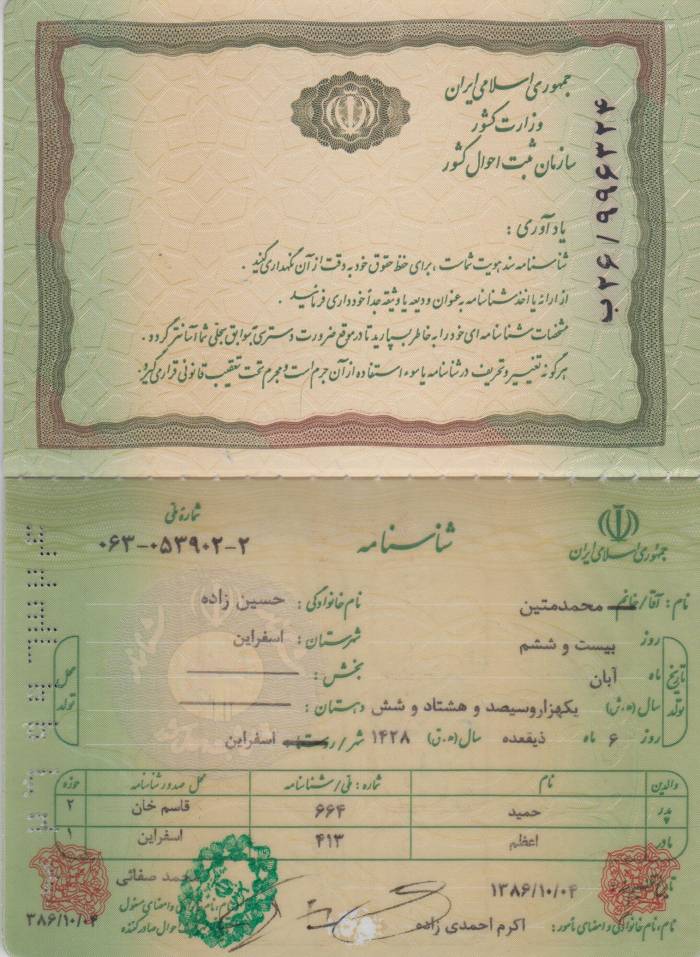 جمهوری اسلامی ایران
وزارت کشور
سازمان ثبت احوال کشور
ب۲۶/۹۹۶۳۲۴
یادآوری :
شناسنامه سند هویت شماست ، برای حفظ حقوق خود به دقت از آن نگهداری کنید .
از ارائه یا اخذ شناسنامه به عنوان ودیعه یا وثیقه جداً خودداری فرمائید .
مشخصات شناسنامه ای خود را به خاطر بسپارید تا در موقع ضرورت دسترسی به سوابق سجلی شما آسانتر گردد .
هرگونه تغییر و تحریف در شناسنامه یا سوء استفاده از آن جرم است و مجرم تحت تعقیب قانونی قرار می گیرد.
جمهوری اسلامی ایران
شناسنامه
شماره ملی
۰۶۳-۰۵۳۹۰۲-۲
نام : آقا/خانم محمدمتین نام خانوادگی : حسین زاده
تاریخ تولد
روز بیست و ششم شهرستان : اسفراین
ماه آبان بخش :
سال (ه.ش) یکهزاروسیصد و هشتاد و شش دهستان :
روز ۶ ماه ذیقعده سال (ه.ق) ۱۴۲۸ شهر/روستا : اسفراین
محل تولد
والدین نام شماره : ملی/شناسنامه محل صدور شناسنامه حوزه
پدر حمید ۶۶۴ قاسم خان ۲
مادر اعظم ۴۱۳ اسفراین ۱
تاریخ تنظیم ۱۳۸۶/۱۰/۰۴
محمد صفائی
نام، نام خانوادگی و امضای مأمور : اکرم احمدی زاده
۳۸۶/۱۰/۰۴